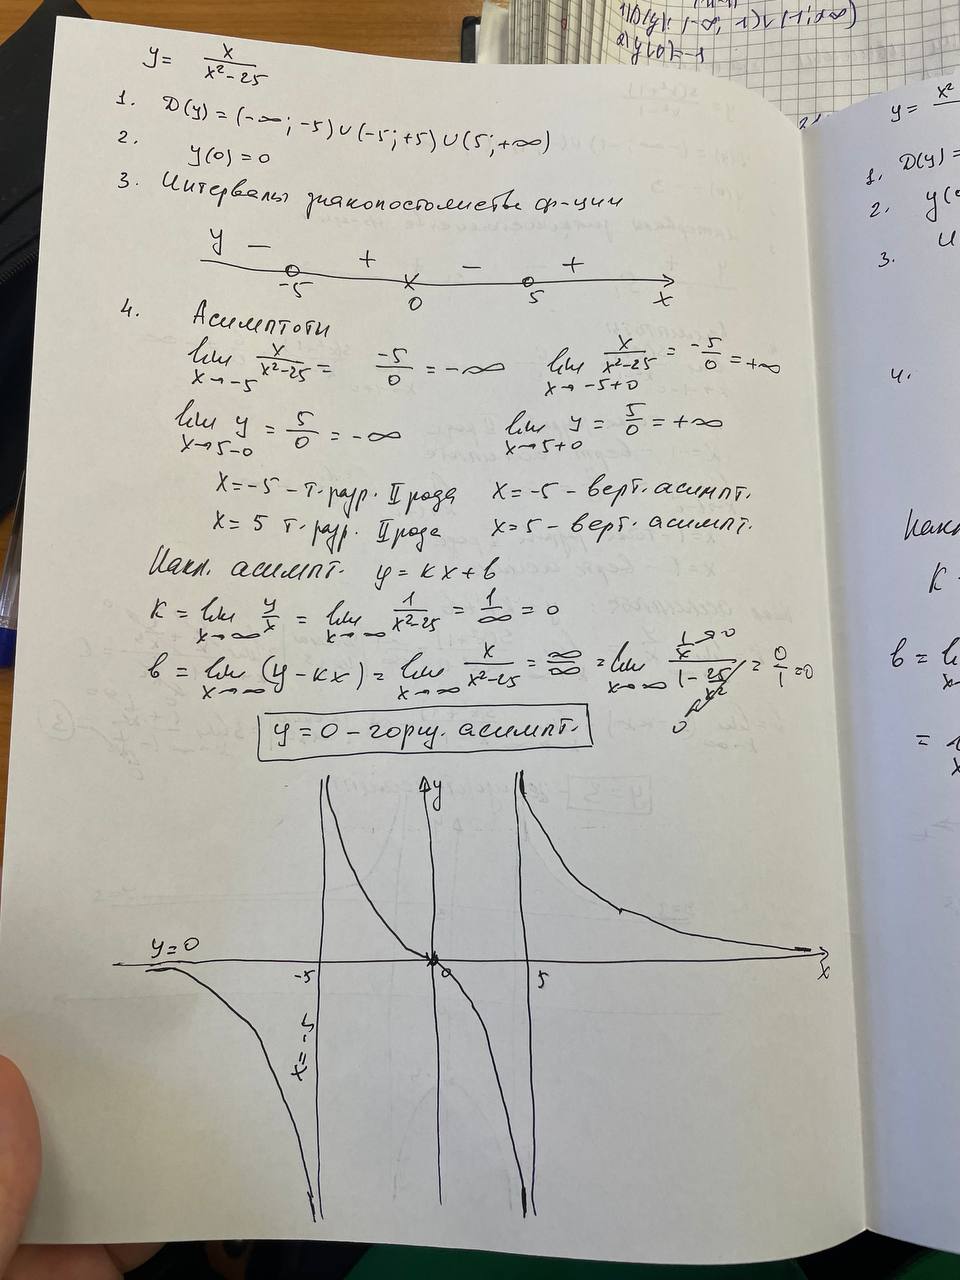 1) D(y): (-∞; 1)∪(1; +∞)
2) y(0)=-1
y = x/(x²-25)
1. D(y) = (-∞; -5)∪(-5; +5)∪(5; +∞)
2. y(0) = 0
3. Интервалы знакопостоянства ф-ции
y - + - +
-5 0 5 x
4. Асимптоти
lim x→-5 x/(x²-25) = -5/0 = -∞ lim x→-5+0 x/(x²-25) = -5/0 = +∞
lim x→5-0 y = 5/0 = -∞ lim x→5+0 y = 5/0 = +∞
x=-5 - т. разр. II рода x=-5 - верт. асимпт.
x = 5 т. разр. II рода x=5 - верт. асимпт.
Накл. асимпт. y = кx + в
к = lim x→∞ y/x = lim x→∞ 1/(x²-25) = 1/∞ = 0
в = lim x→∞ (y - кx) = lim x→∞ x/(x²-25) = ∞/∞ = lim x→∞ (1/x →0)/(1 - 25/x² →0) = 0/1 = 0
y = 0 - гориз. асимпт.
y
y=0
-5 0 5 x
x=-5
y = x²
1. D(y) =
2. y(
3. И
4.
Накл
к =
в =
=